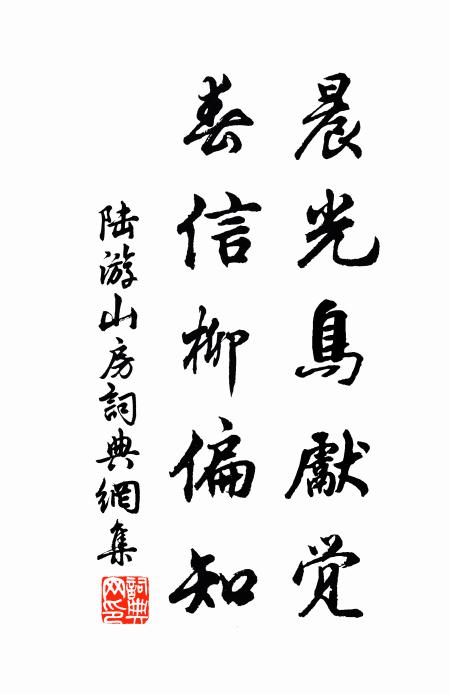 晨光鳥獻觉
春信柳偏知
陆游山房詞典網集
詞典
网印